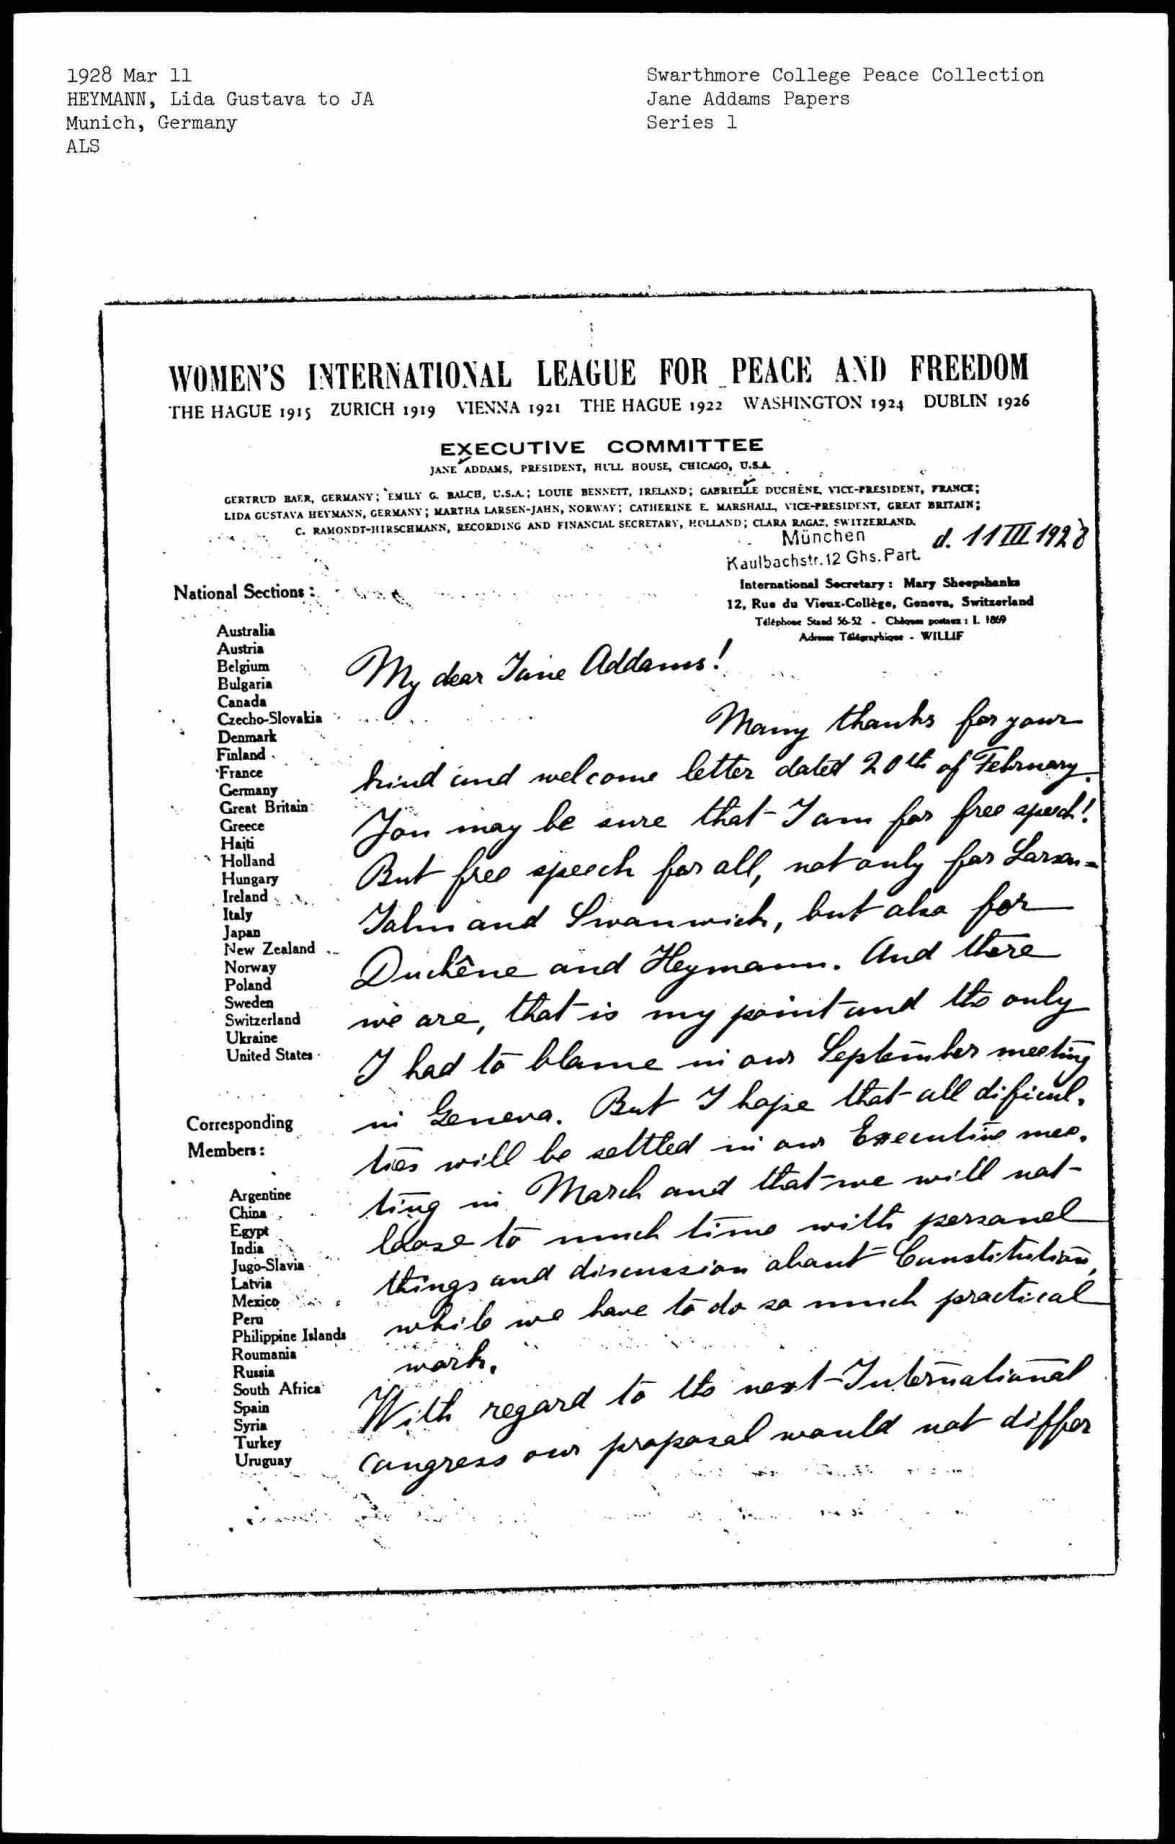 1928 Mar 11
HEYMANN, Lida Gustava to JA
Munich, Germany
ALS
Swarthmore College Peace Collection
Jane Addams Papers
Series 1
WOMEN'S INTERNATIONAL LEAGUE FOR PEACE AND FREEDOM
THE HAGUE 1915 ZURICH 1919 VIENNA 1921 THE HAGUE 1922 WASHINGTON 1924 DUBLIN 1926
EXECUTIVE COMMITTEE
JANE ADDAMS, PRESIDENT, HULL HOUSE, CHICAGO, U.S.A.
GERTRUD BAER, GERMANY; EMILY G. BALCH, U.S.A.; LOUIE BENNETT, IRELAND; GABRIELLE DUCHÊNE, VICE-PRESIDENT, FRANCE;
LIDA GUSTAVA HEYMANN, GERMANY; MARTHA LARSEN-JAHN, NORWAY; CATHERINE E. MARSHALL, VICE-PRESIDENT, GREAT BRITAIN;
C. RAMONDT-HIRSCHMANN, RECORDING AND FINANCIAL SECRETARY, HOLLAND; CLARA RAGAZ, SWITZERLAND.
München
Kaulbachstr. 12 Ghs. Part.
d. 11 III 1928
International Secretary: Mary Sheepshanks
12, Rue du Vieux-Collège, Geneva, Switzerland
Téléphone Stand 56-52 - Chèques postaux: I. 1869
Adresse Télégraphique - WILLIF
National Sections:
Australia
Austria
Belgium
Bulgaria
Canada
Czecho-Slovakia
Denmark
Finland
France
Germany
Great Britain
Greece
Haiti
Holland
Hungary
Ireland
Italy
Japan
New Zealand
Norway
Poland
Sweden
Switzerland
Ukraine
United States
Corresponding
Members:
Argentine
China
Egypt
India
Jugo-Slavia
Latvia
Mexico
Peru
Philippine Islands
Roumania
Russia
South Africa
Spain
Syria
Turkey
Uruguay
My dear Jane Addams!
Many thanks for your
kind and welcome letter dated 20th of February.
You may be sure that I am for free speech!
But free speech for all, not only for Larsen=
Jahn and Swanwich, but also for
Duchêne and Heymann. And there
we are, that is my point and the only
I had to blame in our September meeting
in Geneva. But I hope that all dificul-
ties will be settled in our Executive mee-
ting in March and that we will not
loose to much time with personel
things and discussion about Constitution,
while we have to do so much practical
work.
With regard to the next International
congress our proposal would not differ